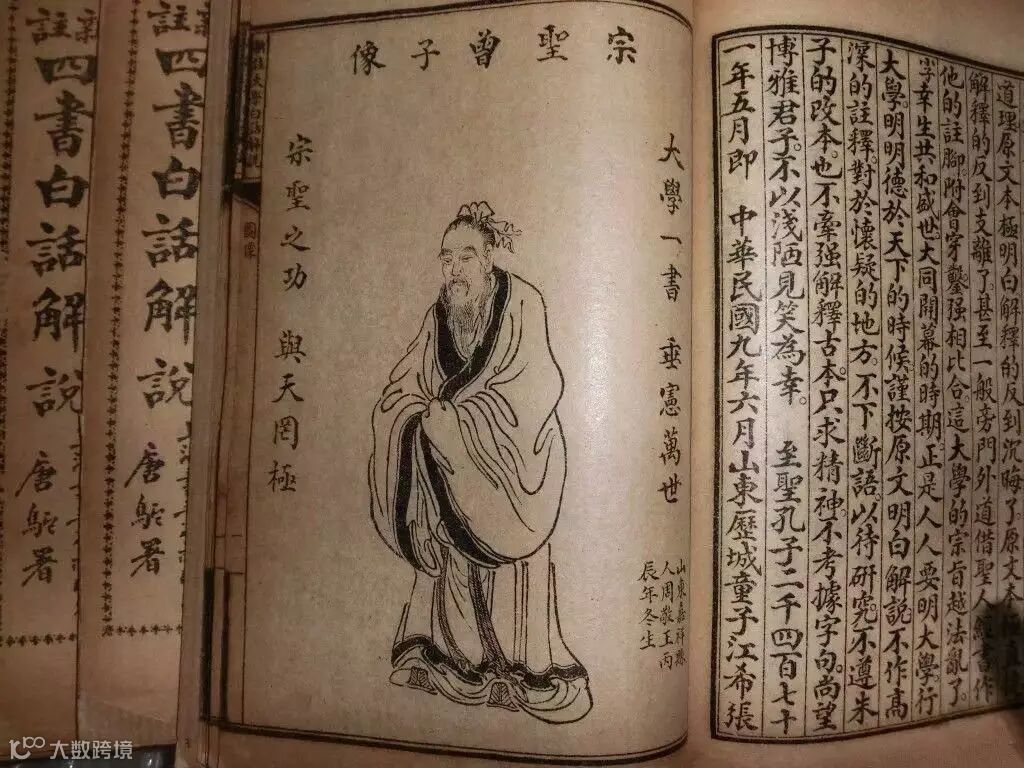 道理原文本極明白解釋的反到沉晦了。原文本
解釋的反到支離了。甚至一般旁門外道借聖人經書作
他的註脚。附會穿鑿强相比合。這大學的宗旨越法亂了。
幸生共和盛世大同開幕的時期。正是人人要明大學行
大學。明明德於天下的時候。謹按原文明白解說。不作高
深的註釋。對於懷疑的地方。不下斷語。以待研究。不遵朱
子的改本。也不牽强解釋古本。只求精神。不考據字句。尚望
博雅君子。不以淺陋見笑為幸。 至聖孔子二千四百七十
一年五月即 中華民國九年六月山東歷城童子江希張
宗聖曾子像
大學一書 垂憲萬世
山東嘉祥縣
人周敬王丙
辰年冬生
宗聖之功 與天罔極
圖像
新註
四書白話解說
唐駝署
新註
四書白話解說
唐駝署
大数跨境